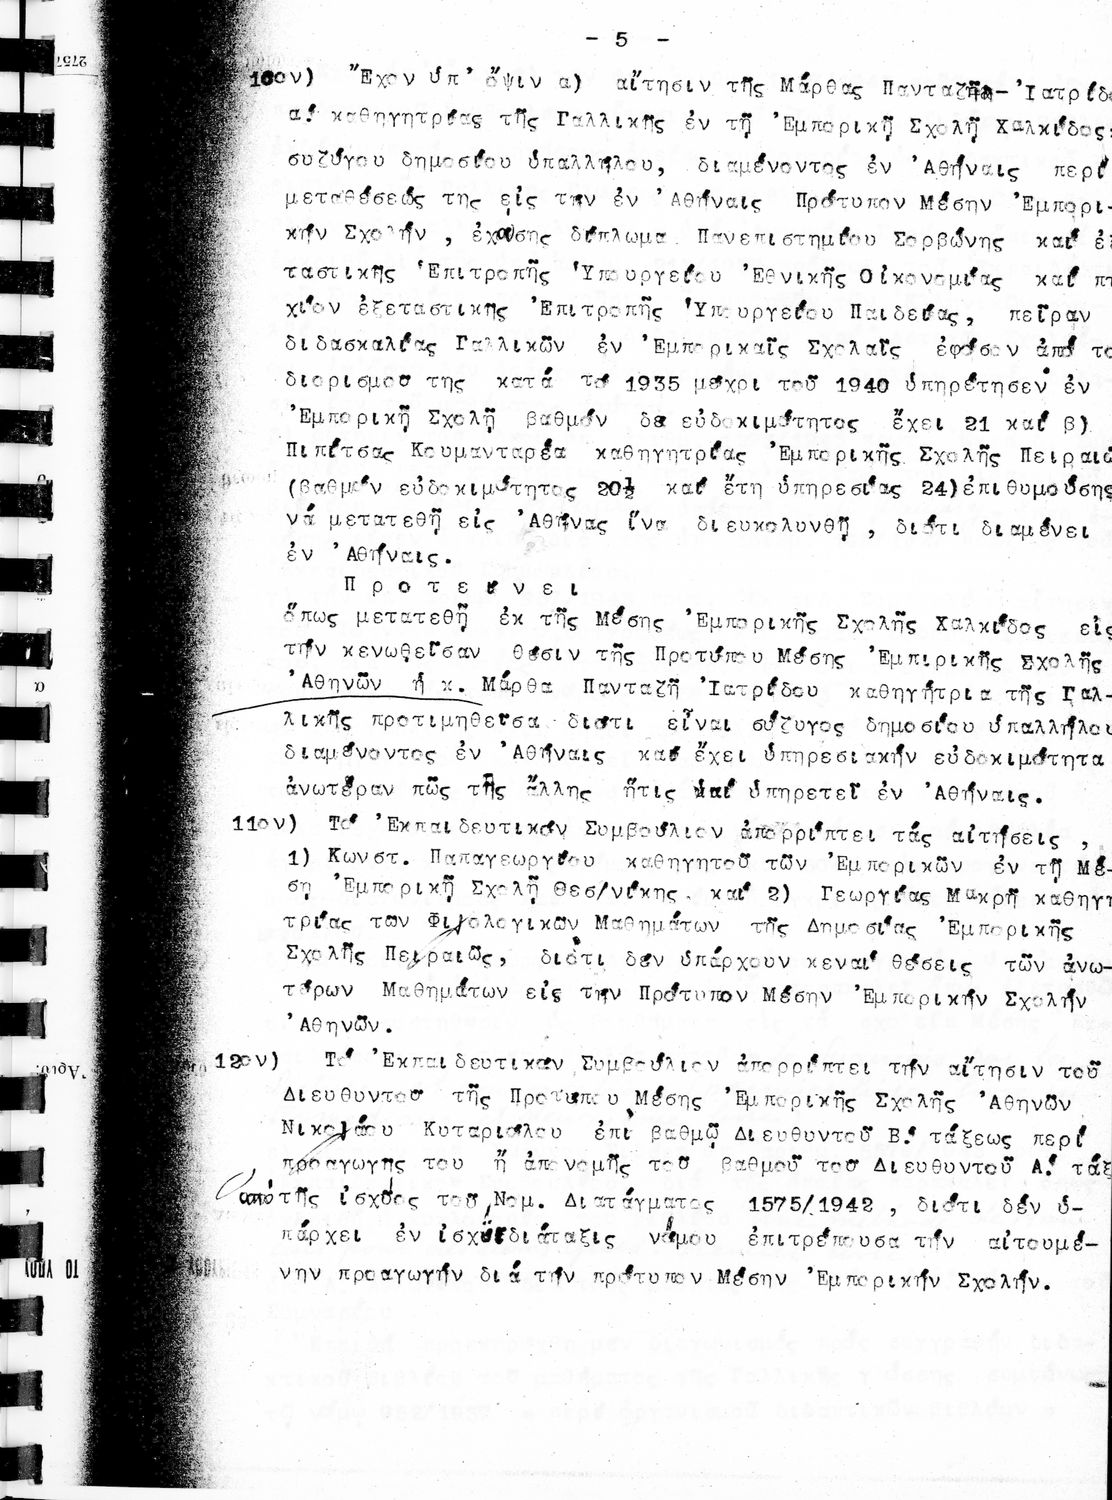 - 5 -
10ον) Ἔχον ὑπ' ὄψιν α) αἴτησιν τῆς Μάρθας Πανταζῆ-Ἰατρίδ
α! καθηγητρίας τῆς Γαλλικῆς ἐν τῇ Ἐμπορικῇ Σχολῇ Χαλκίδος,
συζύγου δημοσίου ὑπαλλήλου, διαμένοντος ἐν Ἀθήναις περί
μεταθέσεώς της εἰς την ἐν Ἀθήναις Πρότυπον Μέσην Ἐμπορι-
κήν Σχολήν , ἐχούσης δίπλωμα Πανεπιστημίου Σορβώνης καί ἐξ
ταστικῆς Ἐπιτροπῆς Ὑπουργείου Ἐθνικῆς Οἰκονομίας καί πτ
χίον ἐξεταστικῆς Ἐπιτροπῆς Ὑπουργείου Παιδείας, πεῖραν
διδασκαλίας Γαλλικῶν ἐν Ἐμπορικαῖς Σχολαῖς ἐφόσον ἀπό το
διορισμοῦ της κατά τό 1935 μέχρι τοῦ 1940 ὑπηρέτησεν ἐν
Ἐμπορικῇ Σχολῇ βαθμόν δέ εὐδοκιμότητος ἔχει 21 καί β)
Πιπίτσας Κουμανταρέα καθηγητρίας Ἐμπορικῆς Σχολῆς Πειραιῶ
(βαθμόν εὐδοκιμότητος 20½ καί ἔτη ὑπηρεσίας 24)ἐπιθυμούσης
νά μετατεθῇ εἰς Ἀθήνας ἵνα διευκολυνθῇ , διότι διαμένει
ἐν Ἀθήναις.
Π ρ ο τ ε ί ν ε ι
ὅπως μετατεθῇ ἐκ τῆς Μέσης Ἐμπορικῆς Σχολῆς Χαλκίδος εἰς
τήν κενωθεῖσαν θέσιν τῆς Προτύπου Μέσης Ἐμπιρικῆς Σχολῆς
Ἀθηνῶν ἡ κ. Μάρθα Πανταζῆ Ἰατρίδου καθηγήτρια τῆς Γαλ-
λικῆς προτιμηθεῖσα διότι εἶναι σύζυγος δημοσίου ὑπαλλήλου
διαμένοντος ἐν Ἀθήναις καί ἔχει ὑπηρεσιακήν εὐδοκιμότητα
ἀνωτέραν πῶς τῆς ἄλλης ἥτις καί ὑπηρετεῖ ἐν Ἀθήναις.
11ον) Τό Ἐκπαιδευτικόν Συμβούλιον ἀπορρίπτει τάς αἰτήσεις ,
1) Κωνστ. Παπαγεωργίου καθηγητοῦ τῶν Ἐμπορικῶν ἐν τῇ Μέ-
σῃ Ἐμπορικῇ Σχολῇ Θεσ/νίκης καί 2) Γεωργίας Μακρῆ καθηγη
τρίας των Φιλολογικῶν Μαθημάτων τῆς Δημοσίας Ἐμπορικῆς
Σχολῆς Πειραιῶς, διότι δέν ὑπάρχουν κεναί θέσεις τῶν ἀνω-
τέρων Μαθημάτων εἰς τήν Πρότυπον Μέσην Ἐμπορικήν Σχολήν
Ἀθηνῶν.
12ον) Τό Ἐκπαιδευτικόν Συμβούλιον ἀπορρίπτει τήν αἴτησιν τοῦ
Διευθυντοῦ τῆς Προτύπου Μέσης Ἐμπορικῆς Σχολῆς Ἀθηνῶν
Νικολάου Κυταριόλου ἐπί βαθμῷ Διευθυντοῦ Β! τάξεως περί
προαγωγῆς του ἤ ἀπονομῆς τοῦ βαθμοῦ τοῦ Διευθυντοῦ Α! τάξ
ἀπό τῆς ἰσχύος τοῦ Νομ. Διατάγματος 1575/1942 , διότι δέν ὑ-
πάρχει ἐν ἰσχύϊ διάταξις νόμου ἐπιτρέπουσα τήν αἰτουμέ-
νην προαγωγήν διά τήν πρότυπον Μέσην Ἐμπορικήν Σχολήν.